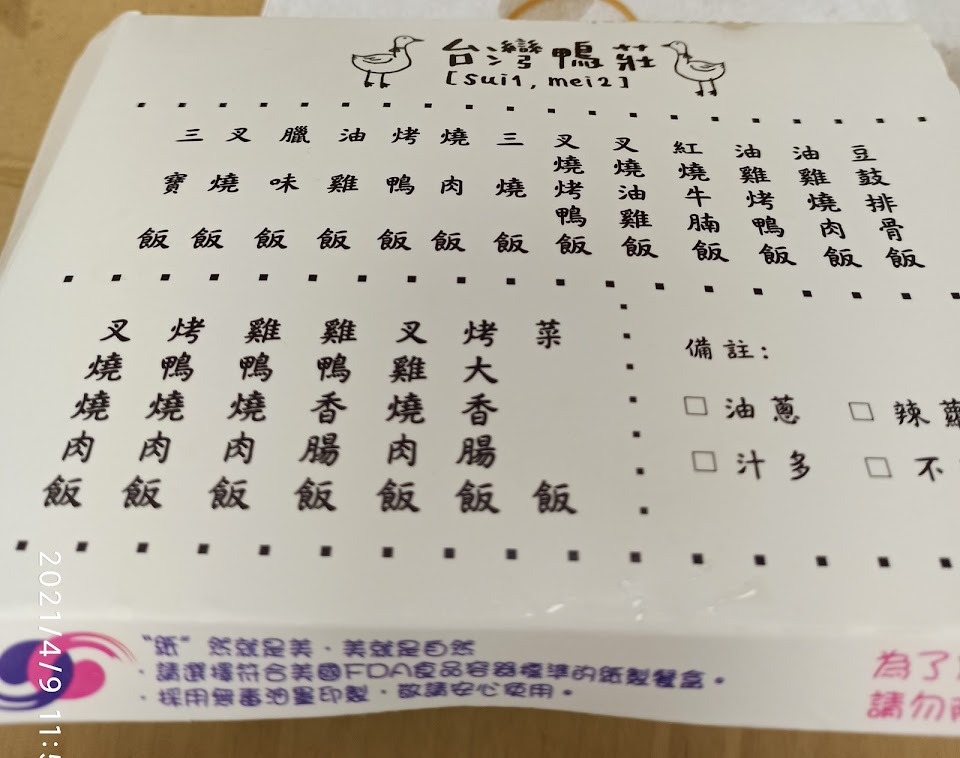 台灣鴨莊
[sui1, mei2]
三寶飯
叉燒飯
臘味飯
油雞飯
烤鴨飯
燒肉飯
三燒飯
叉燒烤鴨飯
叉燒油雞飯
紅燒牛腩飯
油雞烤鴨飯
油雞燒肉飯
豆鼓排骨飯
叉燒燒肉飯
烤鴨燒肉飯
雞鴨燒肉飯
雞鴨香腸飯
叉雞燒肉飯
烤大香腸飯
菜飯
備註:
□ 油蔥 □ 辣
□ 汁多 □ 不
"紙"然就是美、美就是自然
·請選擇符合美國FDA食品容器標準的紙製餐盒。
·採用無毒油墨印製，敬請安心使用。
為了
請勿
2021/4/9 11:5